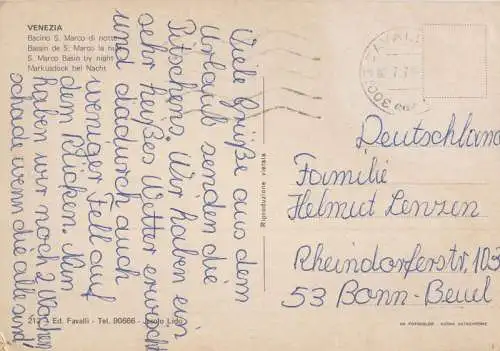 VENEZIA
Bacino S. Marco di notte
Bassin de S. Marco la nuit
S. Marco Basin by night
Markusdock bei Nacht
Viele Grüße aus dem
Urlaub senden die
Pitschens. Wir haben ein
sehr heißes Wetter erwischt
und dadurch auch
weniger Fell auf
dem Rücken. Nun
haben wir noch 2 Wochen
schade wenn die alle sind!
Riproduzione vietata
Deutschland
Familie
Helmut Lenzen
Rheindorferstr. 103
53 Bonn-Beuel
217 - Ed. Favalli - Tel. 90666 - Jesolo Lido